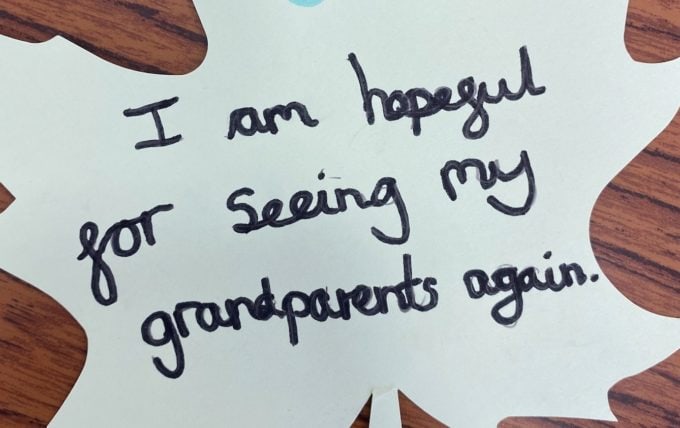 I am hopeful
for seeing my
grandparents again.